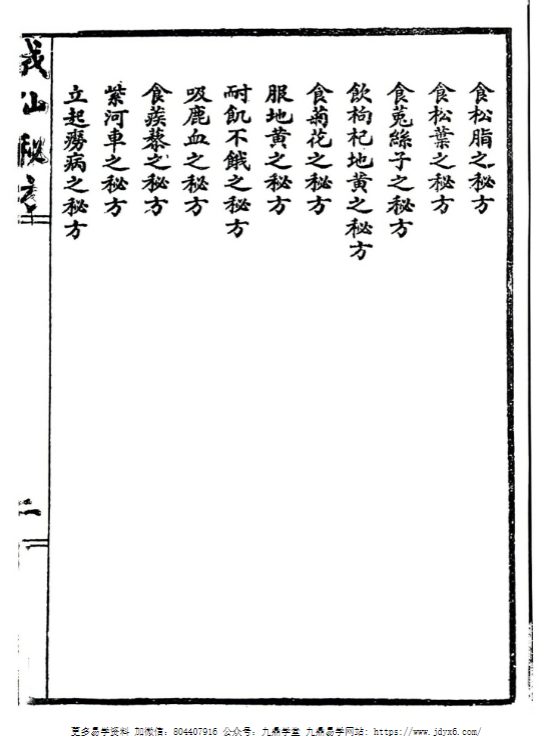 食松脂之秘方
食松葉之秘方
食菟絲子之秘方
飲枸杞地黃之秘方
食菊花之秘方
服地黃之秘方
耐飢不餓之秘方
吸鹿血之秘方
食蒺藜之秘方
紫河車之秘方
立起癆病之秘方
成仙秘方
二
更多易学资料 加微信：804407916 公众号：九鼎学堂 九鼎易学网站：https://www.jdyx6.com/